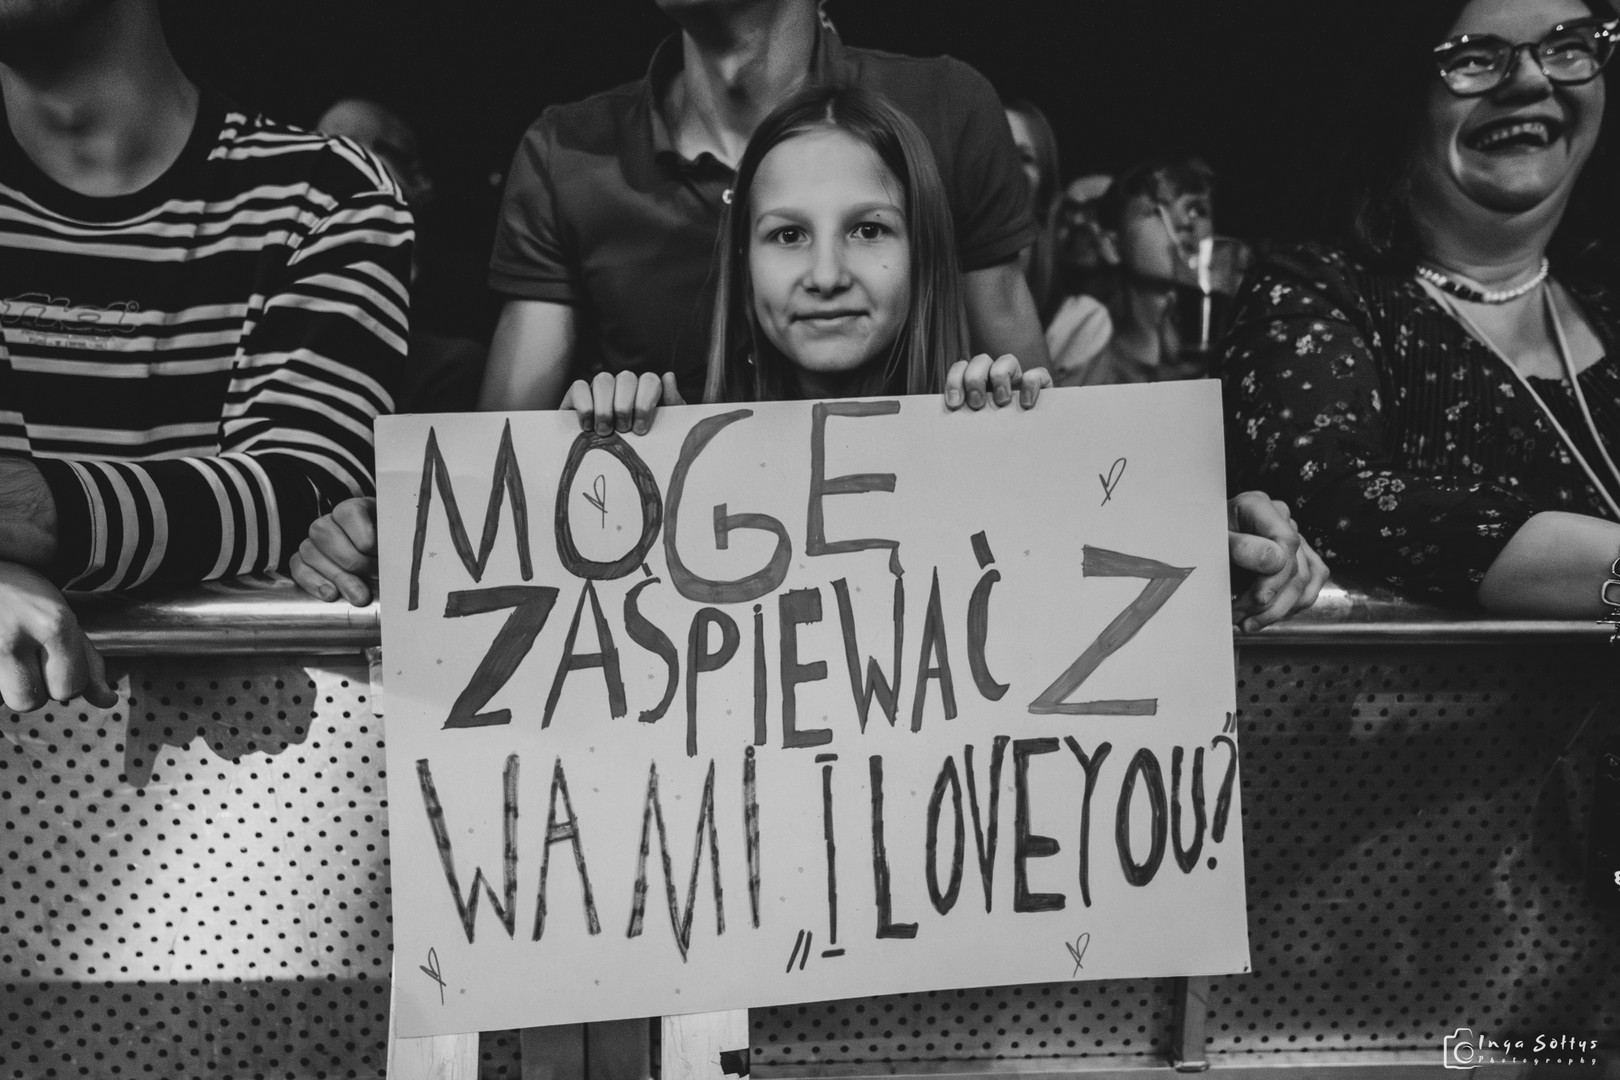 MOGĘ
ZAŚPIEWAĆ Z
WAMI „I LOVE YOU?”
Inga Sołtys
Photography